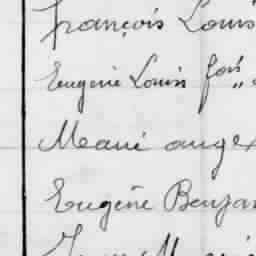 françois Louis
Eugène Louis fois
Marie ange
Eugène Benja